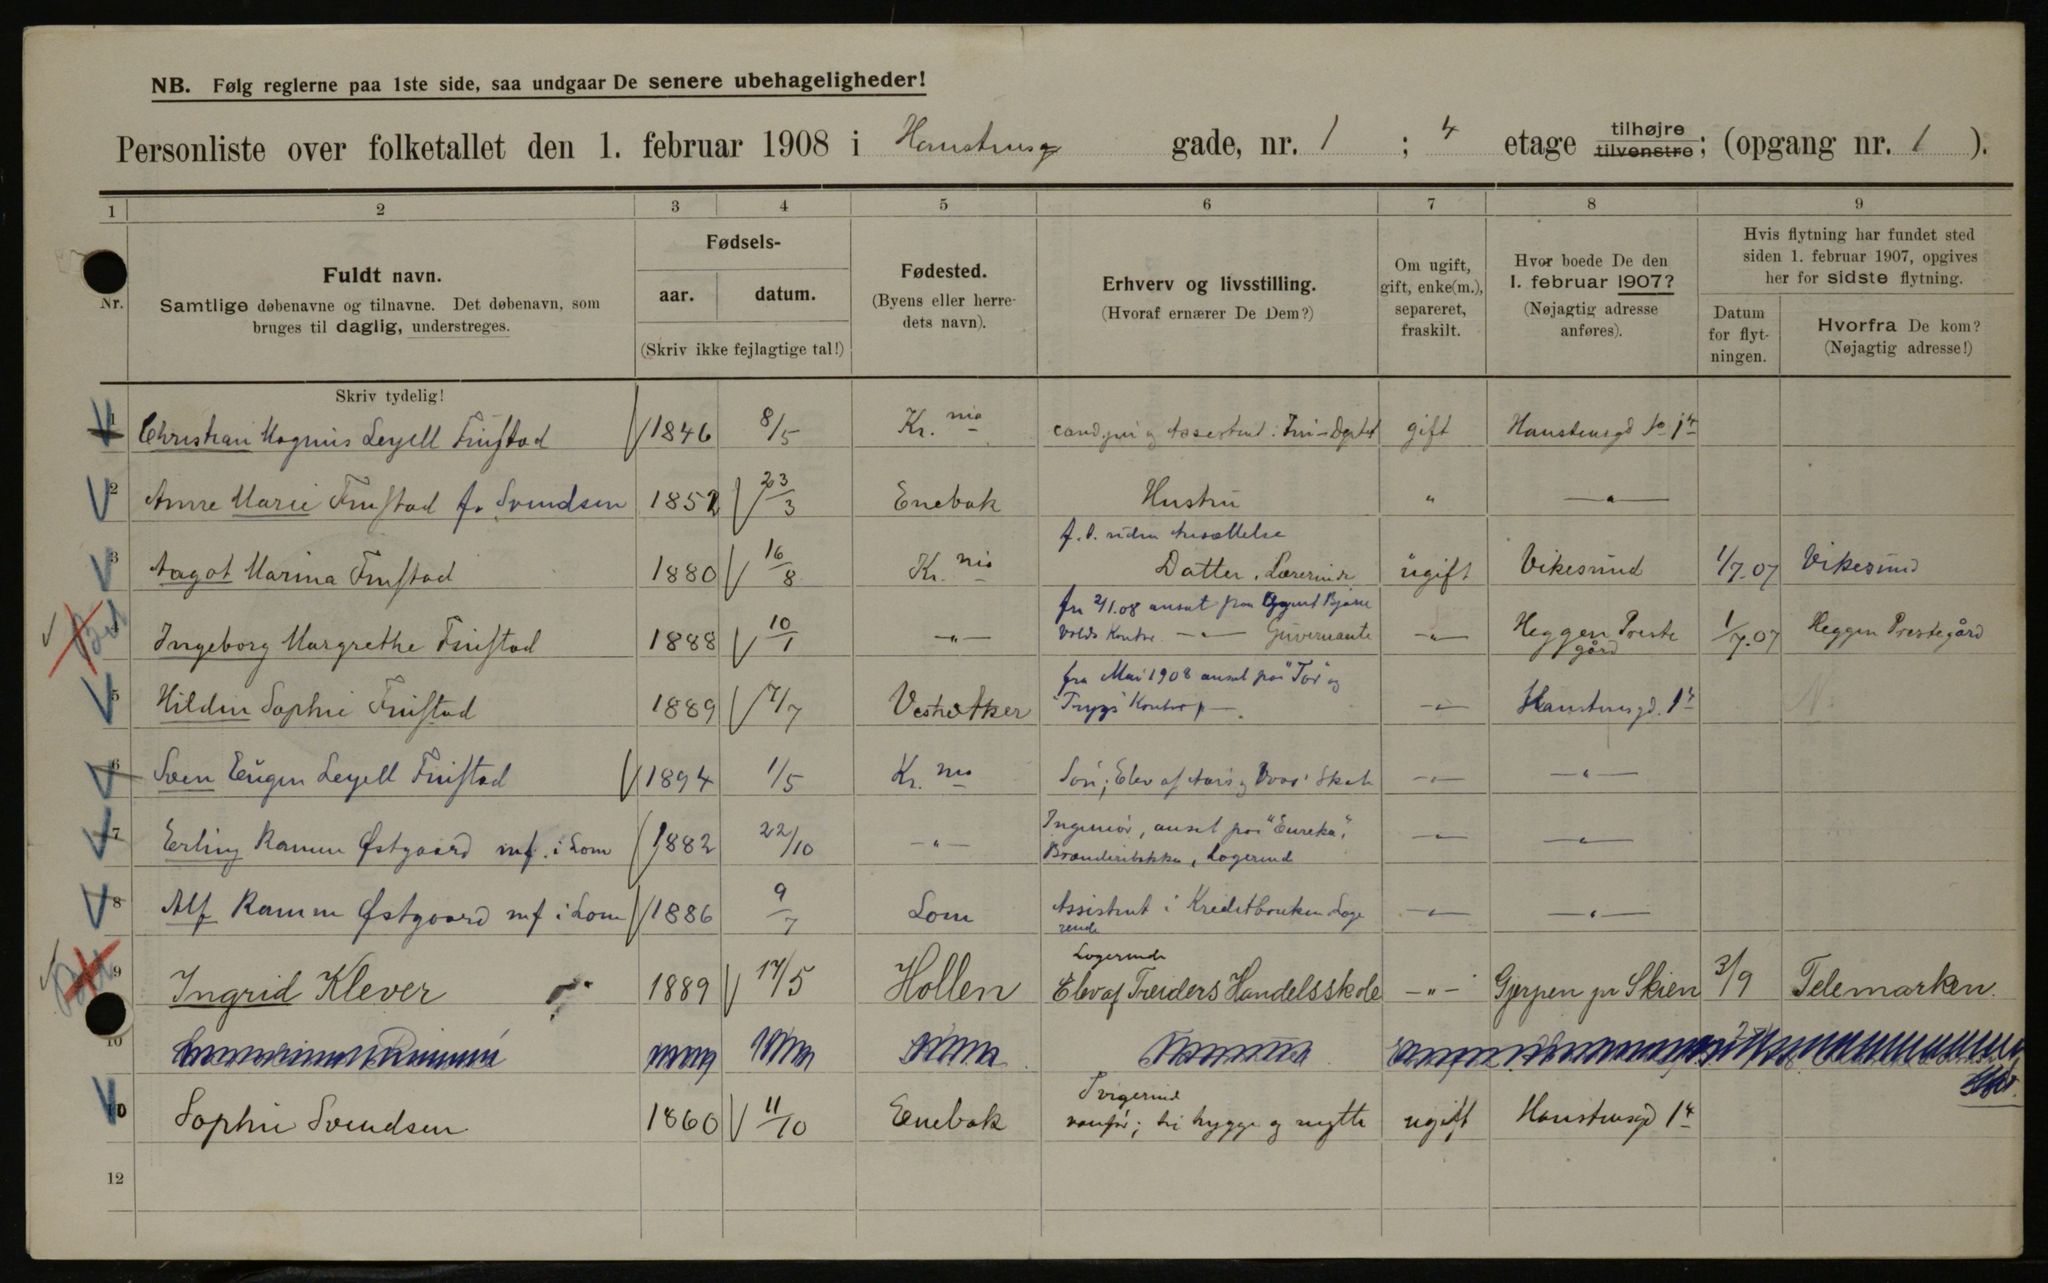 NB. Følg reglerne paa 1ste side, saa undgaar De senere ubehageligheder!
Personliste over folketallet den 1. februar 1908 i Hanstensg gade, nr. 1 ; 4 etage tilhøjre tilvenstre; (opgang nr. 1 ).
1 2 3 4 5 6 7 8 9
Nr.
Fuldt navn.
Samtlige døbenavne og tilnavne. Det døbenavn, som
bruges til daglig, understreges.
Skriv tydelig!
Fødsels-
aar. datum.
(Skriv ikke fejlagtige tal!)
Fødested.
(Byens eller herre-
dets navn).
Erhverv og livsstilling.
(Hvoraf ernærer De Dem?)
Om ugift,
gift, enke(m.),
separeret,
fraskilt.
Hvor boede De den
1. februar 1907?
(Nøjagtig adresse
anføres).
Hvis flytning har fundet sted
siden 1. februar 1907, opgives
her for sidste flytning.
Datum
for flyt-
ningen.
Hvorfra De kom?
(Nøjagtig adresse!)
1 Christian Magnus Leyell Finstad 1846 8/5 Kr.nia cand. jur og Assistent i gift Hanstensgd 1 4
2 Anne Marie Finstad f. Svendsen 1852 23/3 Enebak Hustru " — " —
f. t. uden Ansættelse
3 Aagot Marina Finstad 1880 16/8 Kr.nia Datter, Lærerinde ugift Vikesund 1/7.07 Vikesund
fra 2/1.08 ansat paa Bjerre
4 Ingeborg Margrethe Finstad 1888 10/1 — " — volds Kontor — " — Guvernante — " — Heggen Preste
gård 1/7.07 Heggen Prestegård
fra Mai 1908 ansat paa "Tor" og
5 Hilda Sophie Finstad 1889 7/7 Vestre Aker "Trygs" Kontor — " — Hanstensgd. 1 4
6 Sven Eugen Leyell Finstad 1894 1/5 Kr.nia Søn; Elev af Aars og Voss' Skole — " — — " —
Ingeniør, ansat paa "Eureka",
7 Erling Ramm Østgaard mf. i Lom 1882 22/10 — " — Logerend — " — — " —
8 Alf Ramm Østgaard mf i Lom 1886 9/7 Lom Assistent i Kreditbanken Loge
rende — " — — " —
Logerende
9 Ingrid Klever 1889 17/5 Hollen Elev af Treiders Handelsskole — " — Gjerpen pr Skien 3/9 Telemarken.
10
Svigerind
10 Sophie Svendsen 1860 11/10 Enebak vanfør; til hygge og nytte ugift Hanstensgd 1 4
12